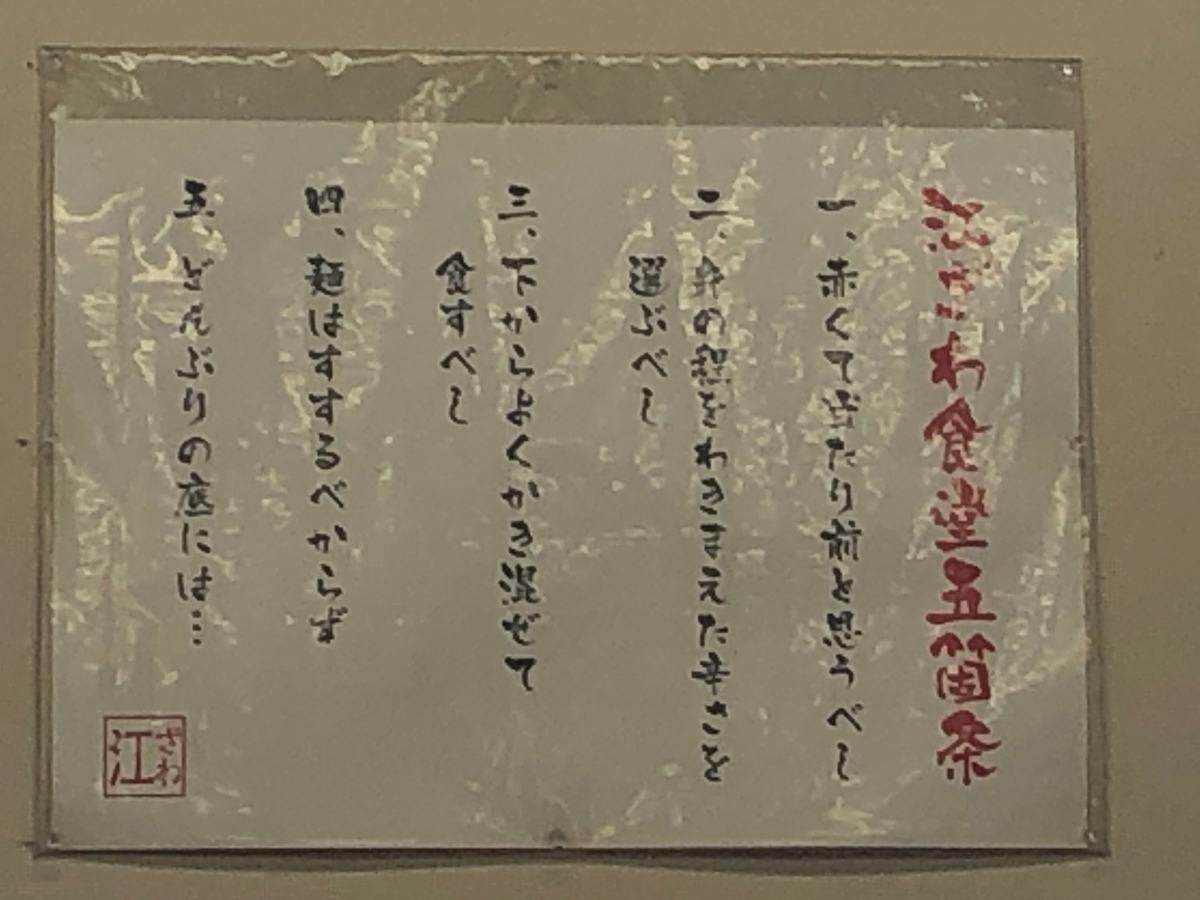 江ざわ食堂五箇条
一、赤くて当たり前と思うべし
二、身の程をわきまえた辛さを
選ぶべし
三、下からよくかき混ぜて
食すべし
四、麺はすするべからず
五、どんぶりの底には…
江ざわ